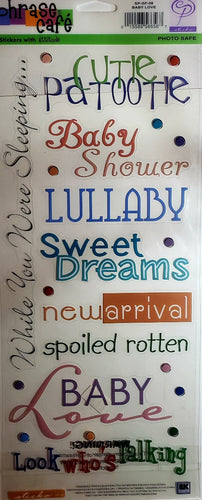 phrase
café
Stickers with Attitude
SP-GF-09
BABY LOVE
PHOTO SAFE
CUTIE
PATOOTIE
While You Were Sleeping...
Baby
Shower
LULLABY
Sweet
Dreams
new arrival
spoiled rotten
BABY
Love
Look who's talking
EK